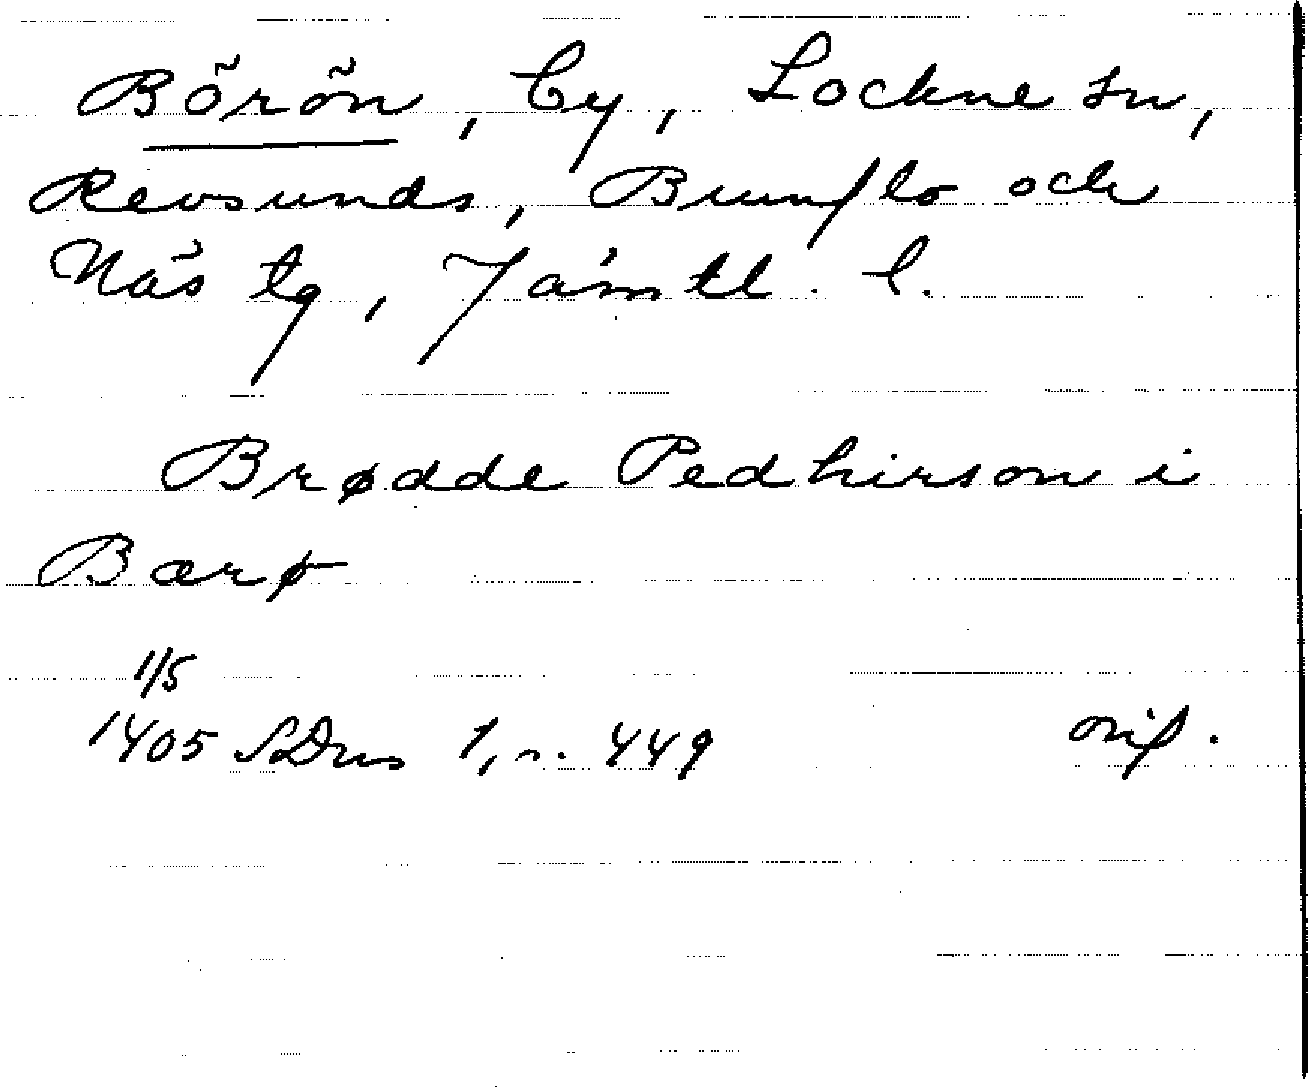 Börön, by, Lockne sn,
Revsunds, Brunflo och
Näs tg, Jämtl. l.
Brødde Pedhirson i
Bærø
1/5
1405 SDns 1, n. 449 orig.